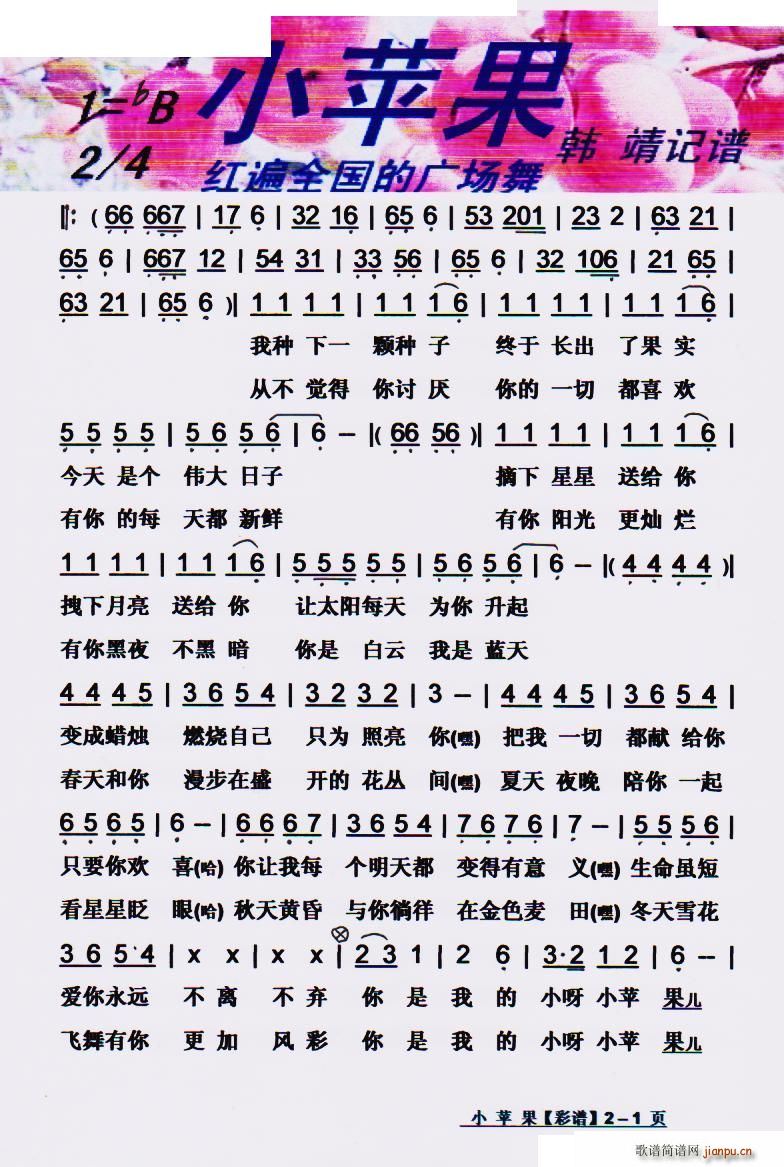 小苹果
1=♭B
2/4
红遍全国的广场舞
韩 靖记谱
‖: ( 66 667 | 17 6 | 32 16 | 65 6 | 53 201 | 23 2 | 63 21 |
65 6 | 667 12 | 54 31 | 33 56 | 65 6 | 32 106 | 21 65 |
63 21 | 65 6 )| 1 1 1 1 | 1 1 1 6 | 1 1 1 1 | 1 1 1 6 |
我种 下一 颗种 子 终于 长出 了果 实
从不 觉得 你讨 厌 你的 一切 都喜 欢
5 5 5 5 | 5 6 5 6 | 6 – |( 66 56 )| 1 1 1 1 | 1 1 1 6 |
今天 是个 伟大 日子 摘下 星星 送给 你
有你 的每 天都 新鲜 有你 阳光 更灿 烂
1 1 1 1 | 1 1 1 6 | 5 5 5 5 5 | 5 6 5 6 | 6 – |( 4 4 4 4 )|
拽下 月亮 送给 你 让太阳每天 为你 升起
有你黑夜 不黑 暗 你是 白云 我是 蓝天
4 4 4 5 | 3 6 5 4 | 3 2 3 2 | 3 – | 4 4 4 5 | 3 6 5 4 |
变成蜡烛 燃烧自己 只为 照亮 你(嘿) 把我 一切 都献 给你
春天和你 漫步在盛 开的 花丛 间(嘿) 夏天 夜晚 陪你 一起
6 5 6 5 | 6 – | 6 6 6 7 | 3 6 5 4 | 7 6 7 6 | 7 – | 5 5 5 6 |
只要你欢 喜(哈) 你让我每 个明天都 变得有意 义(嘿) 生命虽短
看星星眨 眼(哈) 秋天黄昏 与你徜徉 在金色麦 田(嘿) 冬天雪花
3 6 5 4 | x x | x x | 2 3 1 | 2 6 | 3·2 1 2 | 6 – – |
爱你永远 不 离 不 弃 你 是 我 的 小呀 小苹 果儿
飞舞有你 更 加 风 彩 你 是 我 的 小呀 小苹 果儿
小 苹 果【彩谱】2－1 页
歌谱简谱网
jianpu.cn